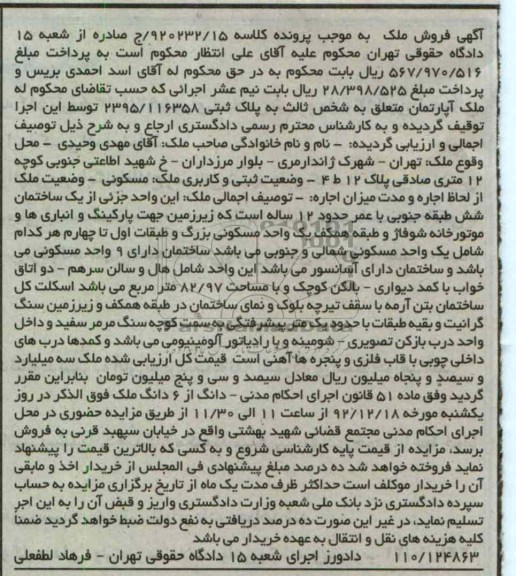 آگهی فروش ملک به موجب پرونده کلاسه ۹۲۰۲۳۲/۱۵/ج صادره از شعبه ۱۵
دادگاه حقوقی تهران محکوم علیه آقای علی انتظار محکوم است به پرداخت مبلغ
۵۶۷/۹۷۰/۵۱۶ ریال بابت محکوم به در حق محکوم له آقای اسد احمدی بریس و
پرداخت مبلغ ۲۸/۳۹۸/۵۲۵ ریال بابت نیم عشر اجرائی که حسب تقاضای محکوم له
ملک آپارتمان متعلق به شخص ثالث به پلاک ثبتی ۲۳۹۵/۱۱۶۳۵۸ توسط این اجرا
توقیف گردیده و به کارشناس محترم رسمی دادگستری ارجاع و به شرح ذیل توصیف
اجمالی و ارزیابی گردیده: - نام و نام خانوادگی صاحب ملک: آقای مهدی وحیدی - محل
وقوع ملک: تهران - شهرک ژاندارمری - بلوار مرزداران - خ شهید اطاعتی جنوبی کوچه
۱۲ متری صادقی پلاک ۱۲ ط ۴ - وضعیت ثبتی و کاربری ملک: مسکونی - وضعیت ملک
از لحاظ اجاره و مدت میزان اجاره: - توصیف اجمالی ملک: این واحد جزئی از یک ساختمان
شش طبقه جنوبی با عمر حدود ۱۲ ساله است که زیرزمین جهت پارکینگ و انباری ها و
موتورخانه شوفاژ و طبقه همکف یک واحد مسکونی بزرگ و طبقات اول تا چهارم هر کدام
شامل یک واحد مسکونی شمالی و جنوبی می باشد ساختمان دارای ۹ واحد مسکونی می
باشد و ساختمان دارای آسانسور می باشد این واحد شامل هال و سالن سرهم - دو اتاق
خواب با کمد دیواری - بالکن کوچک و با مساحت ۸۲/۹۷ متر مربع می باشد اسکلت کل
ساختمان بتن آرمه با سقف تیرچه بلوک و نمای ساختمان در طبقه همکف و زیرزمین سنگ
گرانیت و بقیه طبقات با حدود یک متر پیشرفتگی به سمت کوچه سنگ مرمر سفید و داخل
واحد درب بازکن تصویری - شومینه و با رادیاتور آلومینیومی می باشد و کمدها درب های
داخلی چوبی با قاب فلزی و پنجره ها آهنی است قیمت کل ارزیابی شده ملک سه میلیارد
و سیصد و پنجاه میلیون ریال معادل سیصد و سی و پنج میلیون تومان بنابراین مقرر
گردید وفق ماده ۵۱ قانون اجرای احکام مدنی - دانگ از ۶ دانگ ملک فوق الذکر در روز
یکشنبه مورخه ۹۲/۱۲/۱۸ از ساعت ۱۱ الی ۱۱/۳۰ از طریق مزایده حضوری در محل
اجرای احکام مدنی مجتمع قضائی شهید بهشتی واقع در خیابان سپهبد قرنی به فروش
برسد، مزایده از قیمت پایه کارشناسی شروع و به کسی که بالاترین قیمت را پیشنهاد
نماید فروخته خواهد شد ده درصد مبلغ پیشنهادی فی المجلس از خریدار اخذ و مابقی
آن را خریدار موکلف است حداکثر ظرف مدت یک ماه از تاریخ برگزاری مزایده به حساب
سپرده دادگستری نزد بانک ملی شعبه وزارت دادگستری واریز و قبض آن را به این اجر
تسلیم نماید، در غیر این صورت ده درصد دریافتی به نفع دولت ضبط خواهد گردید ضمناً
کلیه هزینه های نقل و انتقال به عهده خریدار می باشد
۱۱۰/۱۲۴۸۶۳ دادورز اجرای شعبه ۱۵ دادگاه حقوقی تهران - فرهاد لطفعلی